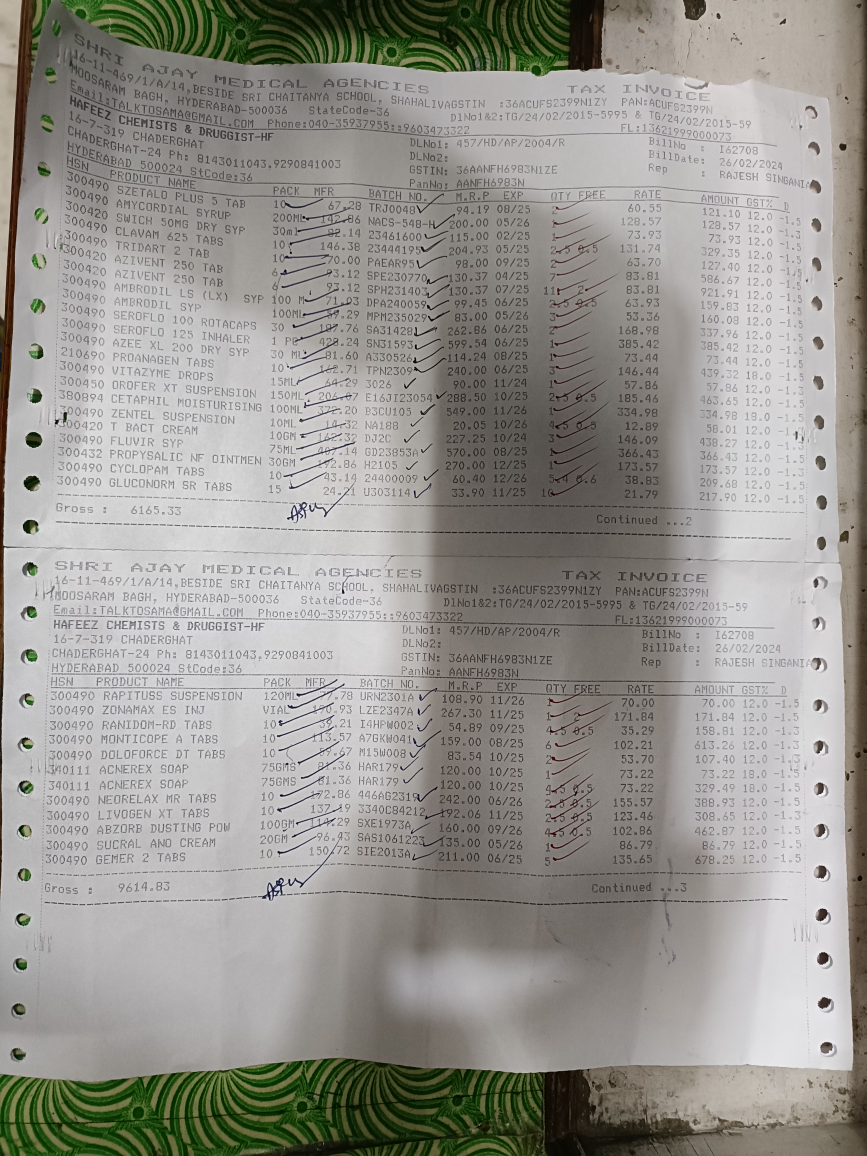 SHRI AJAY MEDICAL AGENCIES TAX INVOICE
16-11-469/1/A/14,BESIDE SRI CHAITANYA SCHOOL, SHAHALIVAGSTIN :36ACUFS2399N1ZY PAN:ACUFS2399N
MOOSARAM BAGH, HYDERABAD-500036 StateCode-36 DlNo1&2:TG/24/02/2015-5995 & TG/24/02/2015-59
Email:TALKTOSAMA@GMAIL.COM Phone:040-35937955::9603473322 FL:13621999000073
HAFEEZ CHEMISTS & DRUGGIST-HF DLNo1: 457/HD/AP/2004/R BillNo : I62708
16-7-319 CHADERGHAT DLNo2: BillDate: 26/02/2024
CHADERGHAT-24 Ph: 8143011043,9290841003 GSTIN: 36AANFH6983N1ZE Rep : RAJESH SINGANIA
HYDERABAD 500024 StCode:36 PanNo: AANFH6983N
HSN PRODUCT NAME PACK MFR BATCH NO. M.R.P EXP QTY FREE RATE AMOUNT GST% D
300490 SZETALO PLUS 5 TAB 10 67.28 TRJ0048 94.19 08/25 2 60.55 121.10 12.0 -1.5
300490 AMYCORDIAL SYRUP 200ML 142.86 NACS-548-H 200.00 05/26 1 128.57 128.57 12.0
300420 SWICH 50MG DRY SYP 30ml 82.14 23461600 115.00 02/25 1 73.93 73.93 12.0 -1.5
300490 CLAVAM 625 TABS 10 146.38 23444195 204.93 05/25 2.5 0.5 131.74 329.35 12.0
300490 TRIDART 2 TAB 10 70.00 PAEAR95 98.00 09/25 2 63.70 127.40 12.0
300420 AZIVENT 250 TAB 6 93.12 SPE230770 130.37 04/25 7 83.81 586.67 12.0 -1.5
300420 AZIVENT 250 TAB 6 93.12 SPH231403 130.37 07/25 11 2 83.81 921.91 12.0 -1.5
300490 AMBRODIL LS (LX) SYP 100 M 71.03 DPA240059 99.45 06/25 2.5 0.5 63.93 159.83 12.0 -1.5
300490 AMBRODIL SYP 100ML 59.29 MPM235029 83.00 05/26 3 53.36 160.08 12.0 -1.5
300490 SEROFLO 100 ROTACAPS 30 187.76 SA31428 262.86 06/25 2 168.98 337.96 12.0 -1.5
300490 SEROFLO 125 INHALER 1 PC 428.24 SN31593 599.54 06/25 1 385.42 385.42 12.0 -1.5
300490 AZEE XL 200 DRY SYP 30 ML 81.60 A330526 114.24 08/25 1 73.44 73.44 12.0 -1.5
210690 PROANAGEN TABS 10 162.71 TPN2309 240.00 06/25 3 146.44 439.32 18.0 -1.5
300490 VITAZYME DROPS 15ML 64.29 3026 90.00 11/24 1 57.86 57.86 12.0 -1.5
300450 OROFER XT SUSPENSION 150ML 206.07 E16JI23054 288.50 10/25 2.5 0.5 185.46 463.65 12.0 -1.5
380894 CETAPHIL MOISTURISING 100ML 372.20 B3CU103 549.00 11/26 1 334.98 334.98 18.0 -1.5
300490 ZENTEL SUSPENSION 10ML 14.32 NA188 20.05 10/26 4.5 0.5 12.89 58.01 12.0
300420 T BACT CREAM 10GM 162.32 DJ2C 227.25 10/24 3 146.09 438.27 12.0 -1.5
300490 FLUVIR SYP 75ML 407.14 GD23853A 570.00 08/25 1 366.43 366.43 12.0 -1.5
300432 PROPYSALIC NF OINTMEN 30GM 192.86 H2105 270.00 12/25 1 173.57 173.57 12.0 -1.5
300490 CYCLOPAM TABS 10 43.14 24400009 60.40 12/26 5.4 0.6 38.83 209.68 12.0 -1.5
300490 GLUCONORM SR TABS 15 24.21 U303114 33.90 11/25 10 21.79 217.90 12.0 -1.5
Gross : 6165.33 Continued ...2
SHRI AJAY MEDICAL AGENCIES TAX INVOICE
16-11-469/1/A/14,BESIDE SRI CHAITANYA SCHOOL, SHAHALIVAGSTIN :36ACUFS2399N1ZY PAN:ACUFS2399N
MOOSARAM BAGH, HYDERABAD-500036 StateCode-36 DlNo1&2:TG/24/02/2015-5995 & TG/24/02/2015-59
Email:TALKTOSAMA@GMAIL.COM Phone:040-35937955::9603473322 FL:13621999000073
HAFEEZ CHEMISTS & DRUGGIST-HF DLNo1: 457/HD/AP/2004/R BillNo : I62708
16-7-319 CHADERGHAT DLNo2: BillDate: 26/02/2024
CHADERGHAT-24 Ph: 8143011043,9290841003 GSTIN: 36AANFH6983N1ZE Rep : RAJESH SINGANIA
HYDERABAD 500024 StCode:36 PanNo: AANFH6983N
HSN PRODUCT NAME PACK MFR BATCH NO. M.R.P EXP QTY FREE RATE AMOUNT GST% D
300490 RAPITUSS SUSPENSION 120ML 77.78 URN2301A 108.90 11/26 1 70.00 70.00 12.0 -1.5
300490 ZONAMAX ES INJ VIAL 190.93 LZE2347A 267.30 11/25 1 2 171.84 171.84 12.0 -1.5
300490 RANIDOM-RD TABS 10 39.21 I4HPW002 54.89 09/25 4.5 0.5 35.29 158.81 12.0 -1.3
300490 MONTICOPE A TABS 10 113.57 A7GKW041 159.00 08/25 6 102.21 613.26 12.0 -1.5
300490 DOLOFORCE DT TABS 10 59.67 M15W008 83.54 10/25 2 53.70 107.40 12.0 -1.3
340111 ACNEREX SOAP 75GMS 81.36 HAR179 120.00 10/25 1 73.22 73.22 18.0 -1.5
340111 ACNEREX SOAP 75GMS 81.36 HAR179 120.00 10/25 4.5 0.5 73.22 329.49 18.0 -1.5
300490 NEORELAX MR TABS 10 172.86 446AG2319 242.00 06/26 2.5 0.5 155.57 388.93 12.0 -1.5
300490 LIVOGEN XT TABS 10 137.19 3340C84212 192.06 11/25 2.5 0.5 123.46 308.65 12.0 -1.3
300490 ABZORB DUSTING POW 100GM 114.29 SXE1973A 160.00 09/26 4.5 0.5 102.86 462.87 12.0 -1.5
300490 SUCRAL ANO CREAM 20GM 96.43 SAS1061223 135.00 05/26 1 86.79 86.79 12.0 -1.5
300490 GEMER 2 TABS 10 150.72 SIE2013A 211.00 06/25 5 135.65 678.25 12.0 -1.5
Gross : 9614.83 Continued ...3